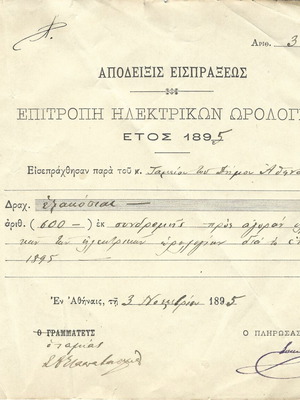 Αριθ. 3
ΑΠΟΔΕΙΞΙΣ ΕΙΣΠΡΑΞΕΩΣ
ΕΠΙΤΡΟΠΗ ΗΛΕΚΤΡΙΚΩΝ ΩΡΟΛΟΓ
ΕΤΟΣ 1895
Εἰσεπράχθησαν παρὰ τοῦ κ. Ταμείου τοῦ Δήμου Ἀθηνα
Δραχ. ἑξακόσιαι —
ἀριθ. (600 —) ἐκ συνδρομῆς πρὸς ἀγορὰν
τῶν ἠλεκτρικῶν ὡρολογίων διὰ τὸ
1895
Ἐν Ἀθήναις, τῇ 3 Νοεμβρίου 1895
Ο ΓΡΑΜΜΑΤΕΥΣ Ο ΠΛΗΡΩΣΑ
ὁ ταμίας